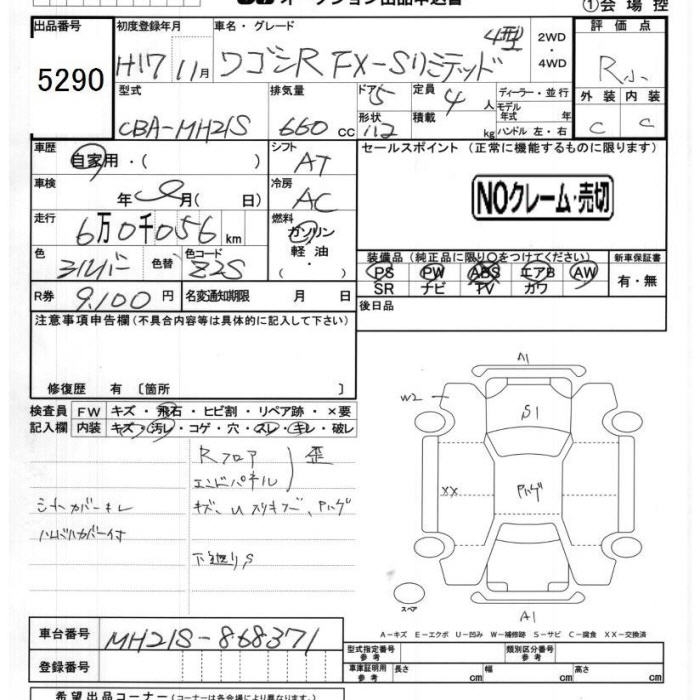 オークション出品申込書
①会場控
出品番号 初度登録年月 車名・グレード 評価点
5290 H17 11月 ワゴンR FX-Sリミテッド 4型 2WD・4WD R小
型式 排気量 ドア 5 定員 4人 ディーラー・並行 外装 内装
CBA-MH21S 660cc 形状 積載 kg モデル年式 年 ハンドル 左・右 C C
車歴 自家用・( ) シフト AT セールスポイント (正常に機能するものに限ります)
車検 年 月( 日) 冷房 AC NOクレーム・売切
走行 6万0千056km 燃料 ガソリン・軽油・
色 シルバー 色替 色コード Z2S 装備品(純正品に限り○をつけてください) 新車保証書
PS PW ABS エアB AW 有・無
SR ナビ TV カワ
R券 9,100円 名変通知期限 月 日 後日品
注意事項申告欄(不具合内容等は具体的に記入して下さい)
修復歴 有 [箇所 ]
検査員記入欄 FW キズ・飛石・ヒビ割・リペア跡・×要
内装 キズ・汚レ・コゲ・穴・スレ・キレ・破レ
Rフロア
エンドパネル 歪
シートカバーキレ
ハンドルカバー付
下廻りS
A1
W2
S1
XX
Pハゲ
スペア
A1
A-キズ E-エクボ U-凹み W-補修跡 S-サビ C-腐食 XX-交換済
車台番号 MH21S-868371 型式指定番号 参考 類別区分番号 参考
登録番号 車庫証明用 参考 長さ cm 幅 cm 高さ cm
希望出品コーナー